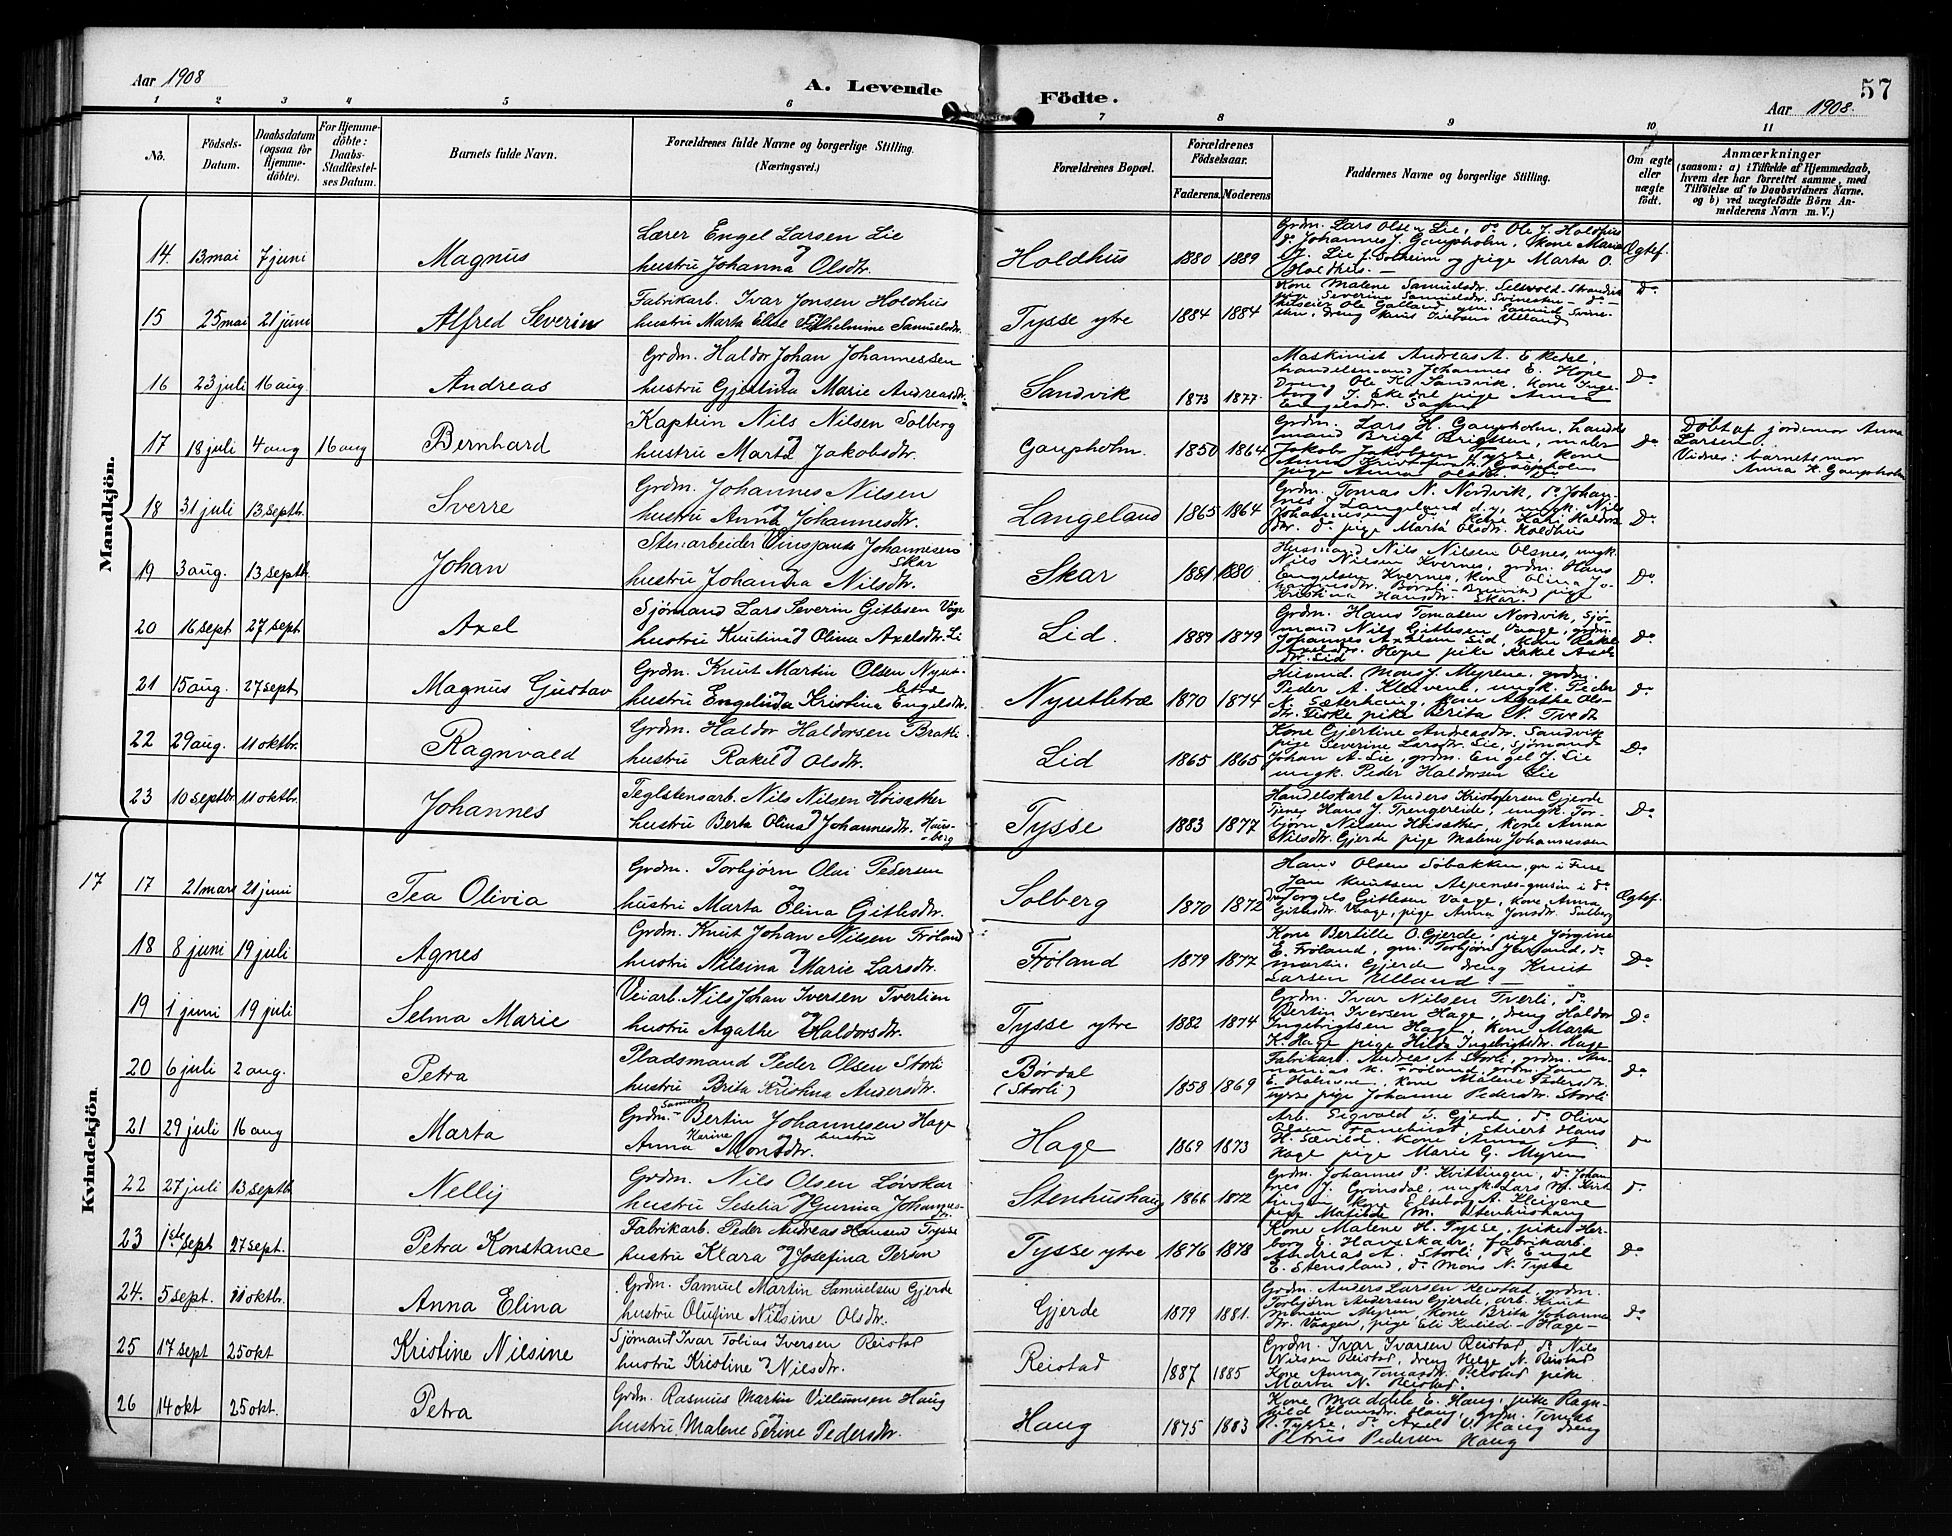 Aar 1908
A. Levende
Födte.
57
Aar 1908.
1 2 3 4 5 6 7 8 9 10 11
No.
Födsels-
Datum.
Daabsdatum
(ogsaa for
Hjemme-
döbte).
For Hjemme-
döbte:
Daabs-
Stadfæstel-
ses Datum.
Barnets fulde Navn.
Forældrenes fulde Navne og borgerlige Stilling.
(Næringsvei.)
Forældrenes Bopæl.
Forældrenes
Födselsaar.
Faderens. Moderens
Faddernes Navne og borgerlige Stilling.
Om ægte
eller
uægte
födt.
Anmærkninger
(saasom: a) i Tilfælde af Hjemmedaab,
hvem der har forrettet samme, med
Tilföielse af to Daabsvidners Navne,
og b) ved uægtefödte Börn An-
melderens Navn m. V.)
Mandkjön.
14. 13 mai 7 juni Magnus
Lærer Engel Larsen Lie
hustru Johanna Olsdtr.
Holdhus 1880 1889
Grdm. Lars Olsen Lie, do Ole J. Holdhus
do Johannes J. Gaupholm, Kone Maria
J. Lie f. Solheim og pige Marta O.
Holdhus. —
Ægtef.
15 25 mai 21 juni Alfred Severin
Fabrikarb. Ivar Jonsen Holdhus
hustru Marta Elise Vilhelmine Samuelsdtr.
Tysse ytre 1884 1884
Kone Malene Samuelsdtr. Selsvold - Strandvik
pige Severine Samuelsdtr.
Do
16 23 juli 16 aug. Andreas
Grdm. Haldor Johan Johannessen
hustru Gjertina Marie Andreasdtr.
Sandvik 1873 1877.
Maskinist Andreas A. Ekedal,
handelsmand Johannes E. Hope
Dreng Ole K. Sandvik, Kone Inge-
borg J. Ekedal pige Anna
Do
17 18 juli 4 aug 16 aug Bernhard
Kaptein Nils Nilsen Solberg
hustru Marta Jakobsdtr.
Gaupholm. 1850 1864
Grdm. Lars H. Gaupholm, handels
mand Brigt Brigtsen, maler
Jakob Jakobsen Tysse, kone
Anna Kristofersdtr. Gaupholm
pige Anna Olsdtr. Do
Do
Döbt af jordemor Anna
Larsen
Vidnes: barnets mor
Anna K. Gaupholm
18 31 juli 13 septb. Sverre
Grdm. Johannes Nilsen
hustru Anna Johannesdtr.
Langeland 1865 1864
Grdm. Tomas N. Nordvik, do Johan-
nes J. Langeland d.y., ungk. Nils
Johannessen do, Kone Kari Haldors
dtr. do pige Marta Olsdtr. Holdhus
Do
19 3 aug. 13 septb. Johan
Stenarbeider Vinsjants Johannesen
Skar
hustru Johanna Nilsdtr.
Skar 1881 1880
Husmand Nils Nilsen Olsnes, ungk.
Nils Nielsen Kvernes, grdm. Hans
Engelsen Kvernes, kone Olina Jo-
Kristina Hansdtr. Skar.
Do
20 16 sept 27 sept Axel
Sjömand Lars Severin Gitlesen Våge
hustru Knutina Olina Axelsdtr. Li
Lid. 1889 1879
Grdm. Hans Tomasen Nordvik, Sjö-
mand Nils Gitlesen Vaage, grdm.
Johannes Axelsen Lid, kone Rakel
Axelsdtr. Hope pike Rakel Axels
dtr. Lid
Do
21 15 aug. 27 sept Magnus Gustav
Grdm. Knut Martin Olsen Nyut-
letræ
hustru Engelinda Kristina Engelsdtr.
Nyutletræ 1870 1874
Husmd. Mons J. Myrene, grdm.
Peder A. Kleivene, ungk. Peder
A. Sæterhaug, Kone Agathe Ols-
dtr. Fiske pike Brita N. Tvedt
Do
22 29 aug. 11 oktbr. Ragnvald
Grdm. Haldor Haldorsen Bratli.
hustru Rakel Olsdtr.
Lid 1865 1865
Kone Gjertine Andreasdtr. Sandvik
pige Severine Larsdtr. Lie, sjömand
Johan A. Lie, grdm. Engel J. Lie
ungk. Peder Haldorsen Lie
Do
23 10 septbr. 11 oktbr. Johannes
Teglstensarb. Nils Nilsen Höisæther
hustru Berta Olina Johannesdtr. Haus-
berg
Tysse 1883 1877
Handelskarl Anders Kristofersen Gjerde
Tjener Hans J. Trengereide, ungk. Tor-
björn Nilsen Höisæter, Kone Anna
Nilsdtr. Gjerde pige Malene Johannessen
Do
Kvindekjön
17
17 21 mars 21 juni Tea Olivia
Grdm. Torbjörn Olai Pedersen
hustru Marta Olina Gitlesdtr.
Solberg 1870 1872
Hans Olsen Söbakken, gm i Fuse
Jan Knutsen Aspenes - gmsön i do
do Torgils Gitlesen Vaage, kone Anna
Gitlesdtr. Vaage, pige Anna Jonsdtr. Solberg
Ægtef.
18 8 juni 19 juli Agnes
Grdm. Knut Johan Nilsen Fröland
hustru Nilsina Marie Larsdtr.
Fröland 1879 1877
Kone Bertille O. Gjerde, pige Jörgine
E. Fröland, gm. Torbjörn Jarland, do
Martin Gjerde dreng Knut
Larsen Ulland. —
Do
19 1 juni 19 juli Selma Marie
Veiarb. Nils Johan Iversen Tverlien
hustru Agathe Haldorsdtr.
Tysse ytre 1882 1874
Grdm. Ivar Nilsen Tverli, do
Bertin Iversen Hage, dreng Haldor
Ingebrigtsen Hage, kone Marta
K. Hage pige Hilda Ingebrigtsdtr. Hage
Do
20 6 juli 2 aug. Petra
Pladsmand Peder Olsen Storli
hustru Brita Kristina Andersdtr.
Bördal
(Storli) 1858 1869
Fabrikarb. Andreas A. Storli, grdm. An-
nanias K. Fröland, grdm. Jan
E. Holmen, kone Malene Pedersdtr.
Tysse pige Johanne Pedersdtr. Storli
do
21 29 juli 16 aug Marta
Grdm. Samuel Bertin Johannesen Hage
Anna Karine Monsdtr. hustru
Hage 1869 1873
Arb. Sigvald S. Gjerde, do Oliver
Olsen Fanebust Stuert Hans
H. Sævild. Kone Anna A.
Hage pige Marie G. Myren
do
22 27 juli 13 septbr Nellij
Grdm. Nils Olsen Lövskar
hustru Seselia Gurina Johannes-
dtr.
Stenhushaug 1866 1872
Grdm. Johannes P. Kvittingen, do Johan
nes J. Grönsdal, ungk. Lars M. Kvit
tingen kone Elseborg A. Kleivene
pige Matilde M. Stenhushaug
do
23 1ste sept 27 sept. Petra Konstance
Fabrikarb. Peder Andreas Hansen Tysse
hustru Klara Josefina Persen
Tysse ytre 1876 1878
Kone Malene H. Tysse, pike Her-
borg E. Havskaar, fabrikarb.
Andreas A. Storli, do Engel
E. Stensland, do Mons N. Tysse
Do
24. 5 sept. 11 oktbr. Anna Elina
Grdm. Samuel Martin Samuelsen Gjerde
hustru Olufine Nilsine Olsdtr.
Gjerde 1879 1881.
Grdm. Anders Larsen Reistad, grdm.
Torbjörn Andersen Gjerde, arb. Knut
Monsen Myren, kone Brita Johannes
dtr. Vaagen, pige Eli Kvild - Hage
do
25 17 sept 25 okt Kristine Nilsine
Sjömand Ivar Tobias Iversen Reistad
hustru Kristine Nilsdtr.
Reistad 1887 1885
Grdm. Ivar Ivarsen Reistad, do Nils
Nilsen Reistad, dreng Helge N. Reistad
Kone Anna Tomasdtr. Reistad pike
Marta N. Reistad.
26 14 okt 25 okt. Petra
Grdm. Rasmus Martin Villumsen Haug
hustru Malene Serine Pedersdtr.
Haug 1875 1883
Kone Maddele E. Haug, pike Ragn-
hild Hansdtr. Haug, grdm. Tomas
R. Tysse, do Axel V. Haug dreng
Petrus Pedersen Haug